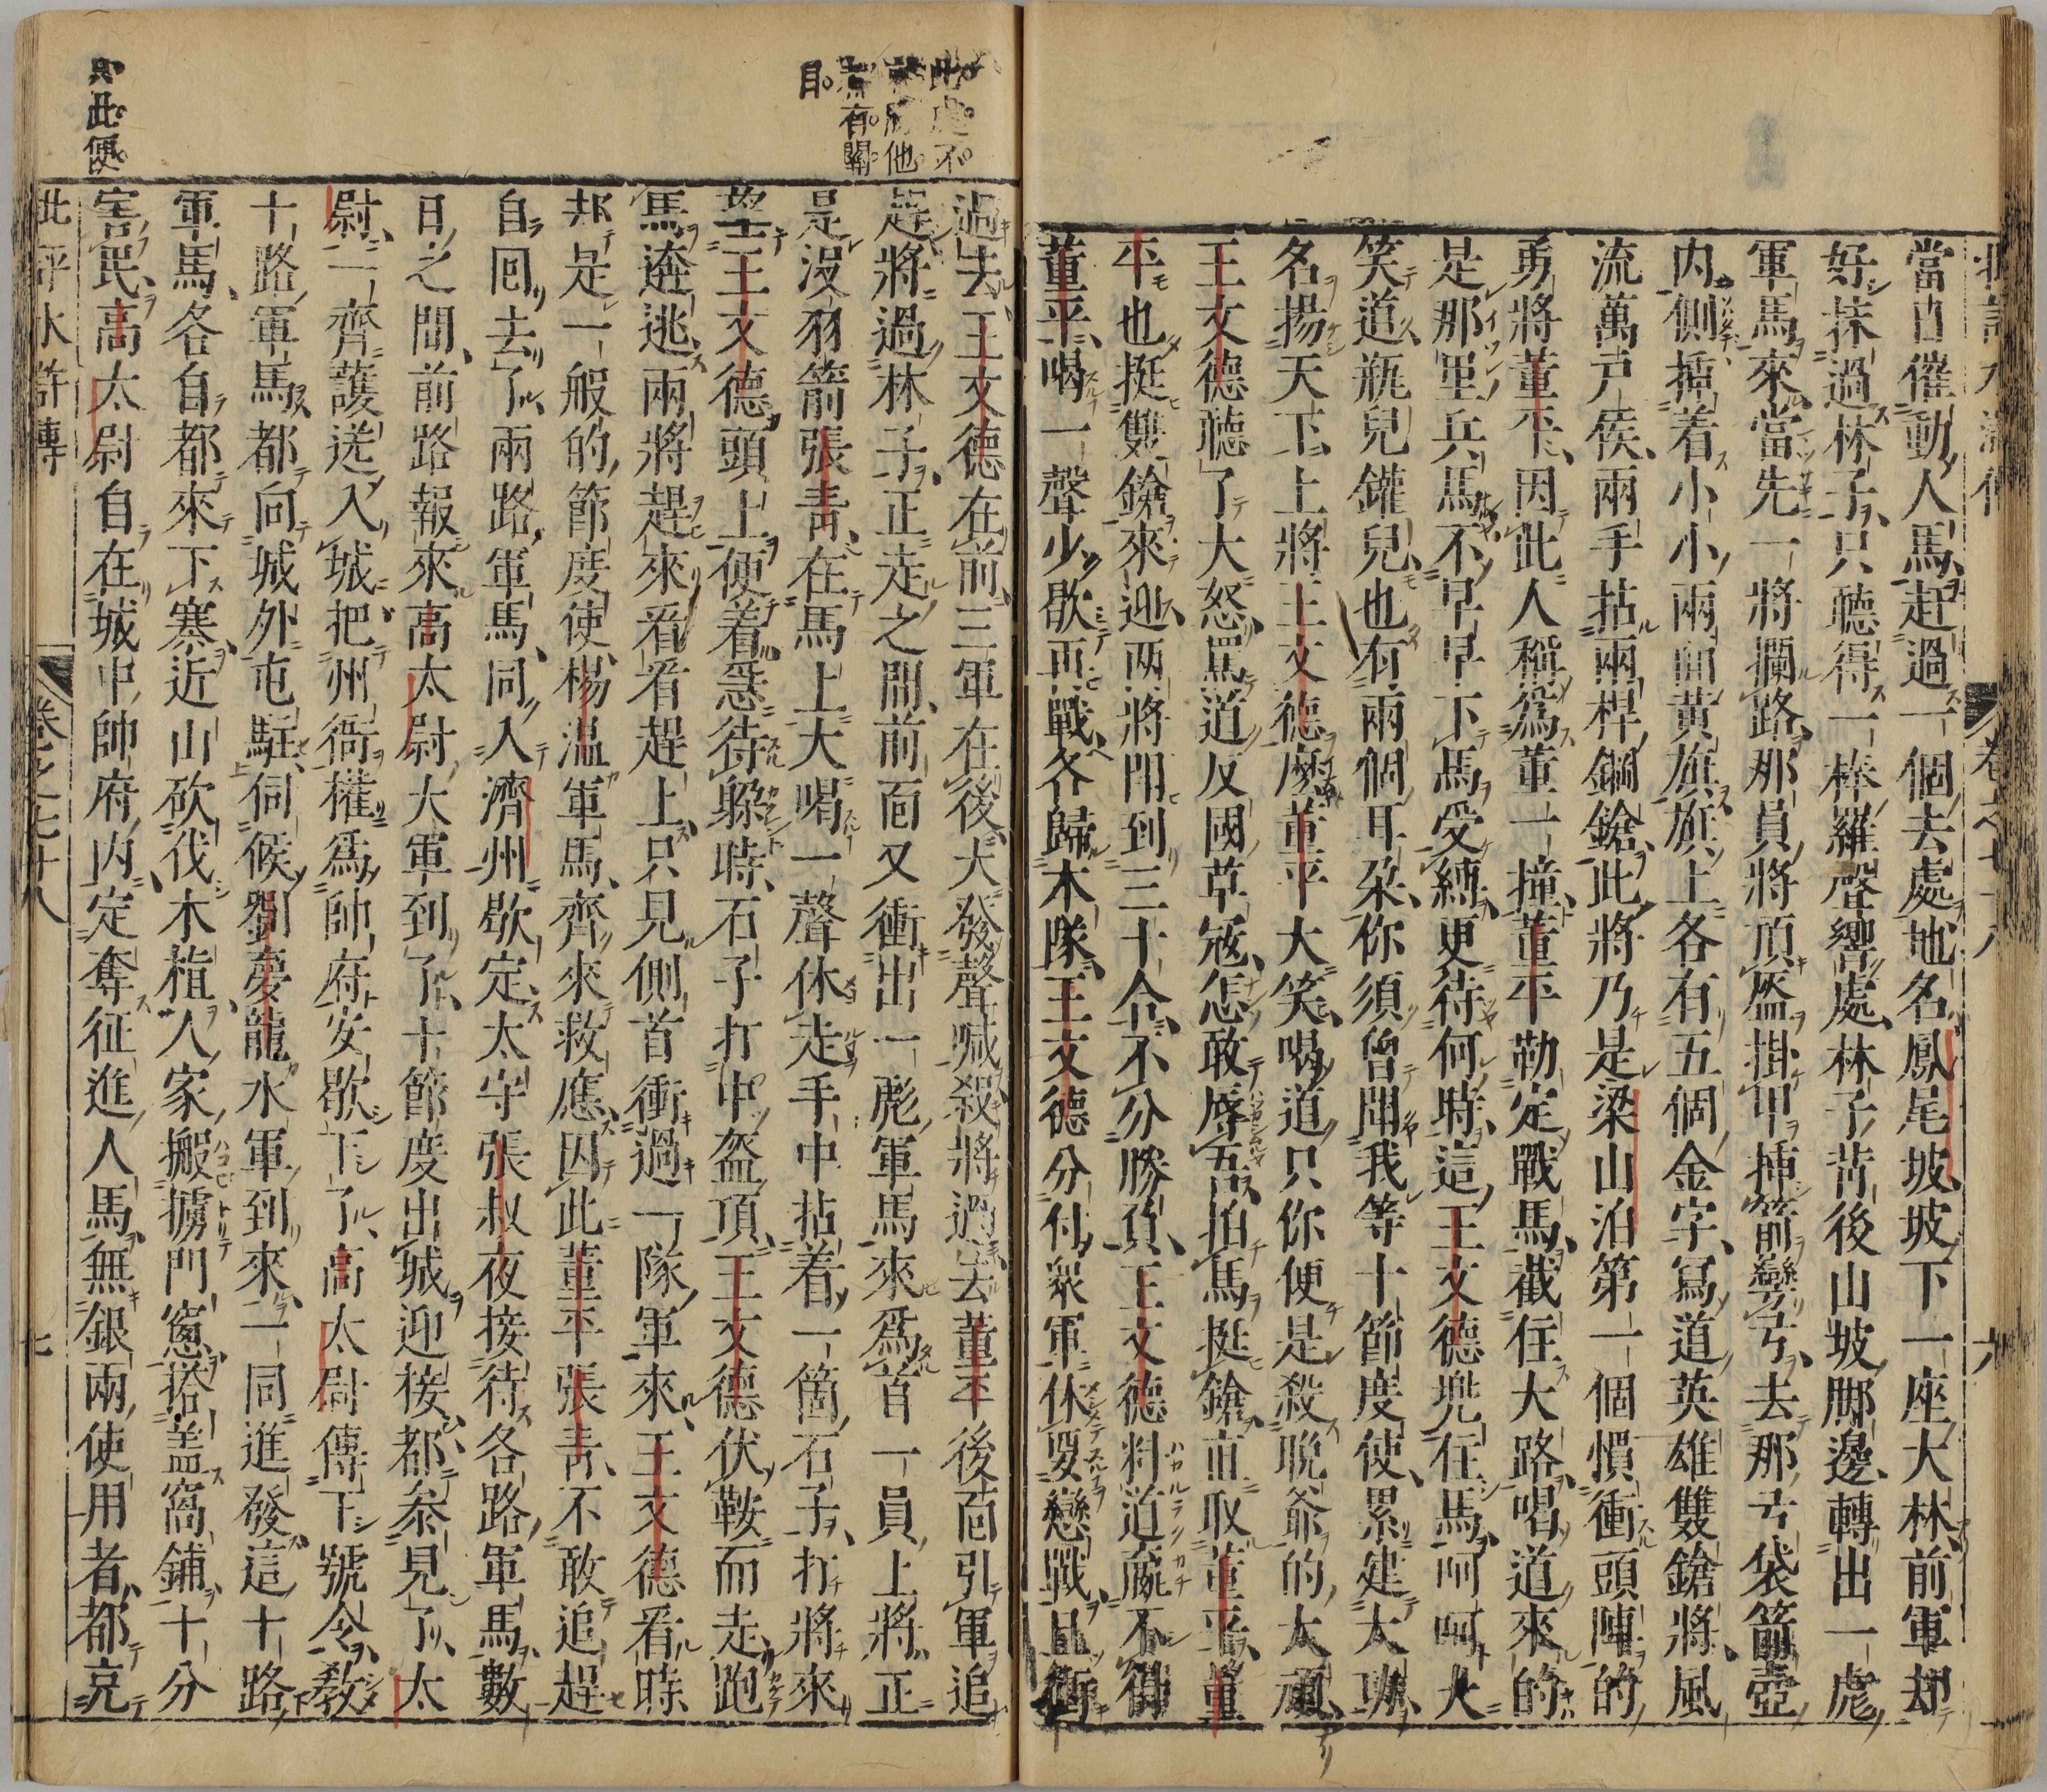 卷之七十八
六
當日催動人馬赶過一個去處地名鳳尾坡坡下一座大林前軍却
好抹過林子只聽得一棒羅聲響處林子背後山坡脚邊轉出一彪
軍馬來當先一將攔路那員將頂盔掛甲挿箭彎弓去那弓袋箭壺
内側揷着小小兩面黃旗旗上各有五個金字寫道英雄雙鎗將風
流萬戸侯兩手拈兩桿鋼鎗此將乃是梁山泊第一個慣衝頭陣的
勇將董平因此人稱爲董一撞董平勒定戰馬截住大路喝道來的
是那里兵馬不早早下馬受縛更待何時這王文德兜住馬呵呵大
笑道瓶兒鑵兒也有兩個耳朶你須曾聞我等十節度使累建大功
名揚天下上將王文德麽董平大笑喝道只你便是殺晩爺的大頑
王文德聽了大怒罵道反國草冦怎敢辱吾拍馬挺鎗直取董平董
平也挺雙鎗來迎兩將閗到三十合不分勝負王文德料道贏不得
董平喝一聲少歇再戰各歸本隊王文德分付衆軍休要戀戰且衝
此處不
他
有關
目
只此便
過去王文德在前三軍在後大發聲喊殺將過去董平後面引軍追
趕將過林子正走之間前面又衝出一彪軍馬來爲首一員上將正
是沒羽箭張青在馬上大喝一聲休走手中拈着一箇石子打將來
望王文德頭上便着急待躱時石子打中盔頂王文德伏鞍而走跑
馬逩逃兩將趕來看看趕上只見側首衝過一隊軍來王文德看時
却是一般的節度使楊温軍馬齊來救應因此董平張青不敢追趕
自囘去了兩路軍馬同入濟州歇定太守張叔夜接待各路軍馬數
日之間前路報來高太尉大軍到了十節度出城迎接都叅見了太
尉一齊護送入城把州衙權爲帥府安歇下了高太尉傳下號令教
十路軍馬都向城外屯駐伺候劉夢龍水軍到來一同進發這十路
軍馬各自都來下寨近山砍伐木植人家搬擄門窻搭盖窩鋪十分
害民高太尉自在城中帥府内定奪征進人馬無銀兩使用者都克
批評水滸傳
卷之七十八
七